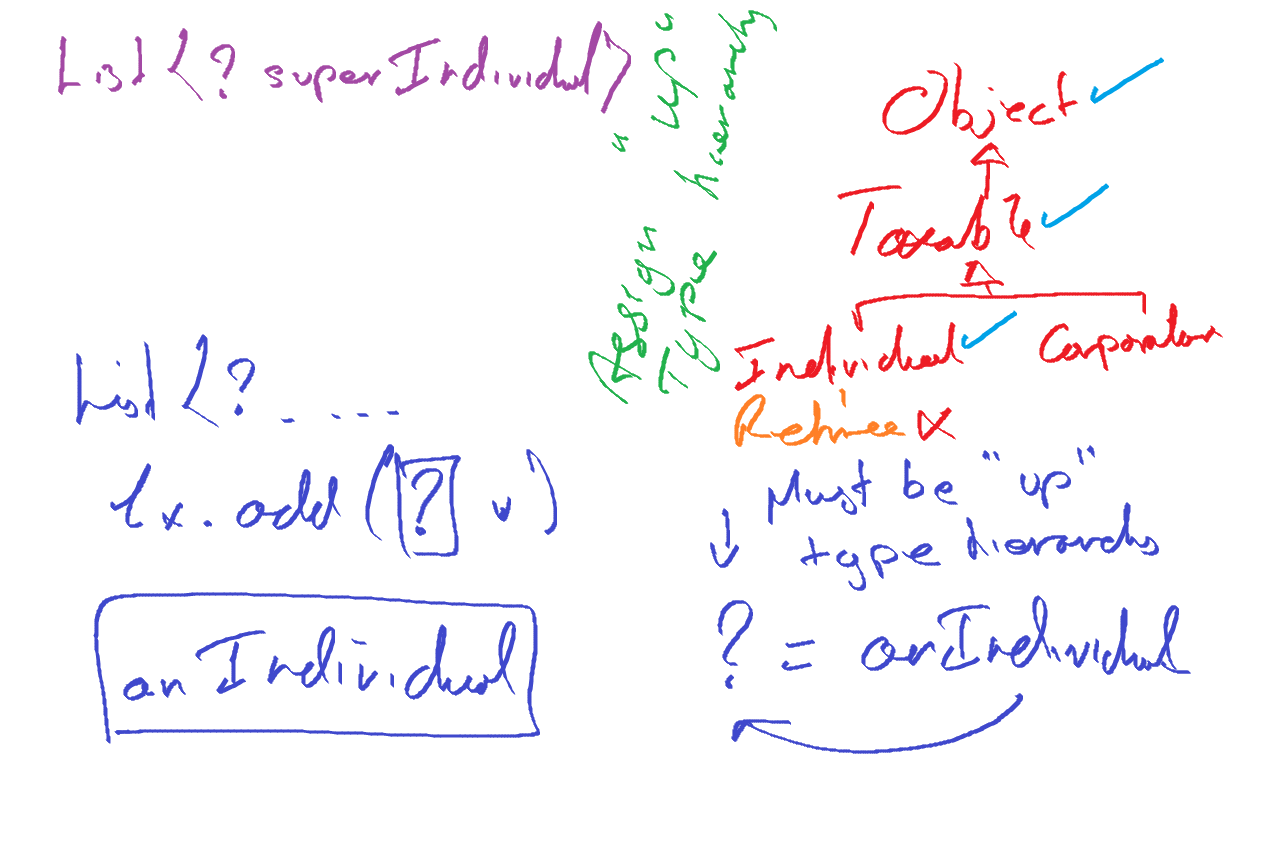 List <? super Individual>
Assign "up"
Type hierarchy
Object ✓
Taxable ✓
Individual ✓ Corporation
Retiree ✗
List <? - - - -
lx.add (? v)
Must be "up"
↓ type hierarchy
an Individual
? = anIndividual